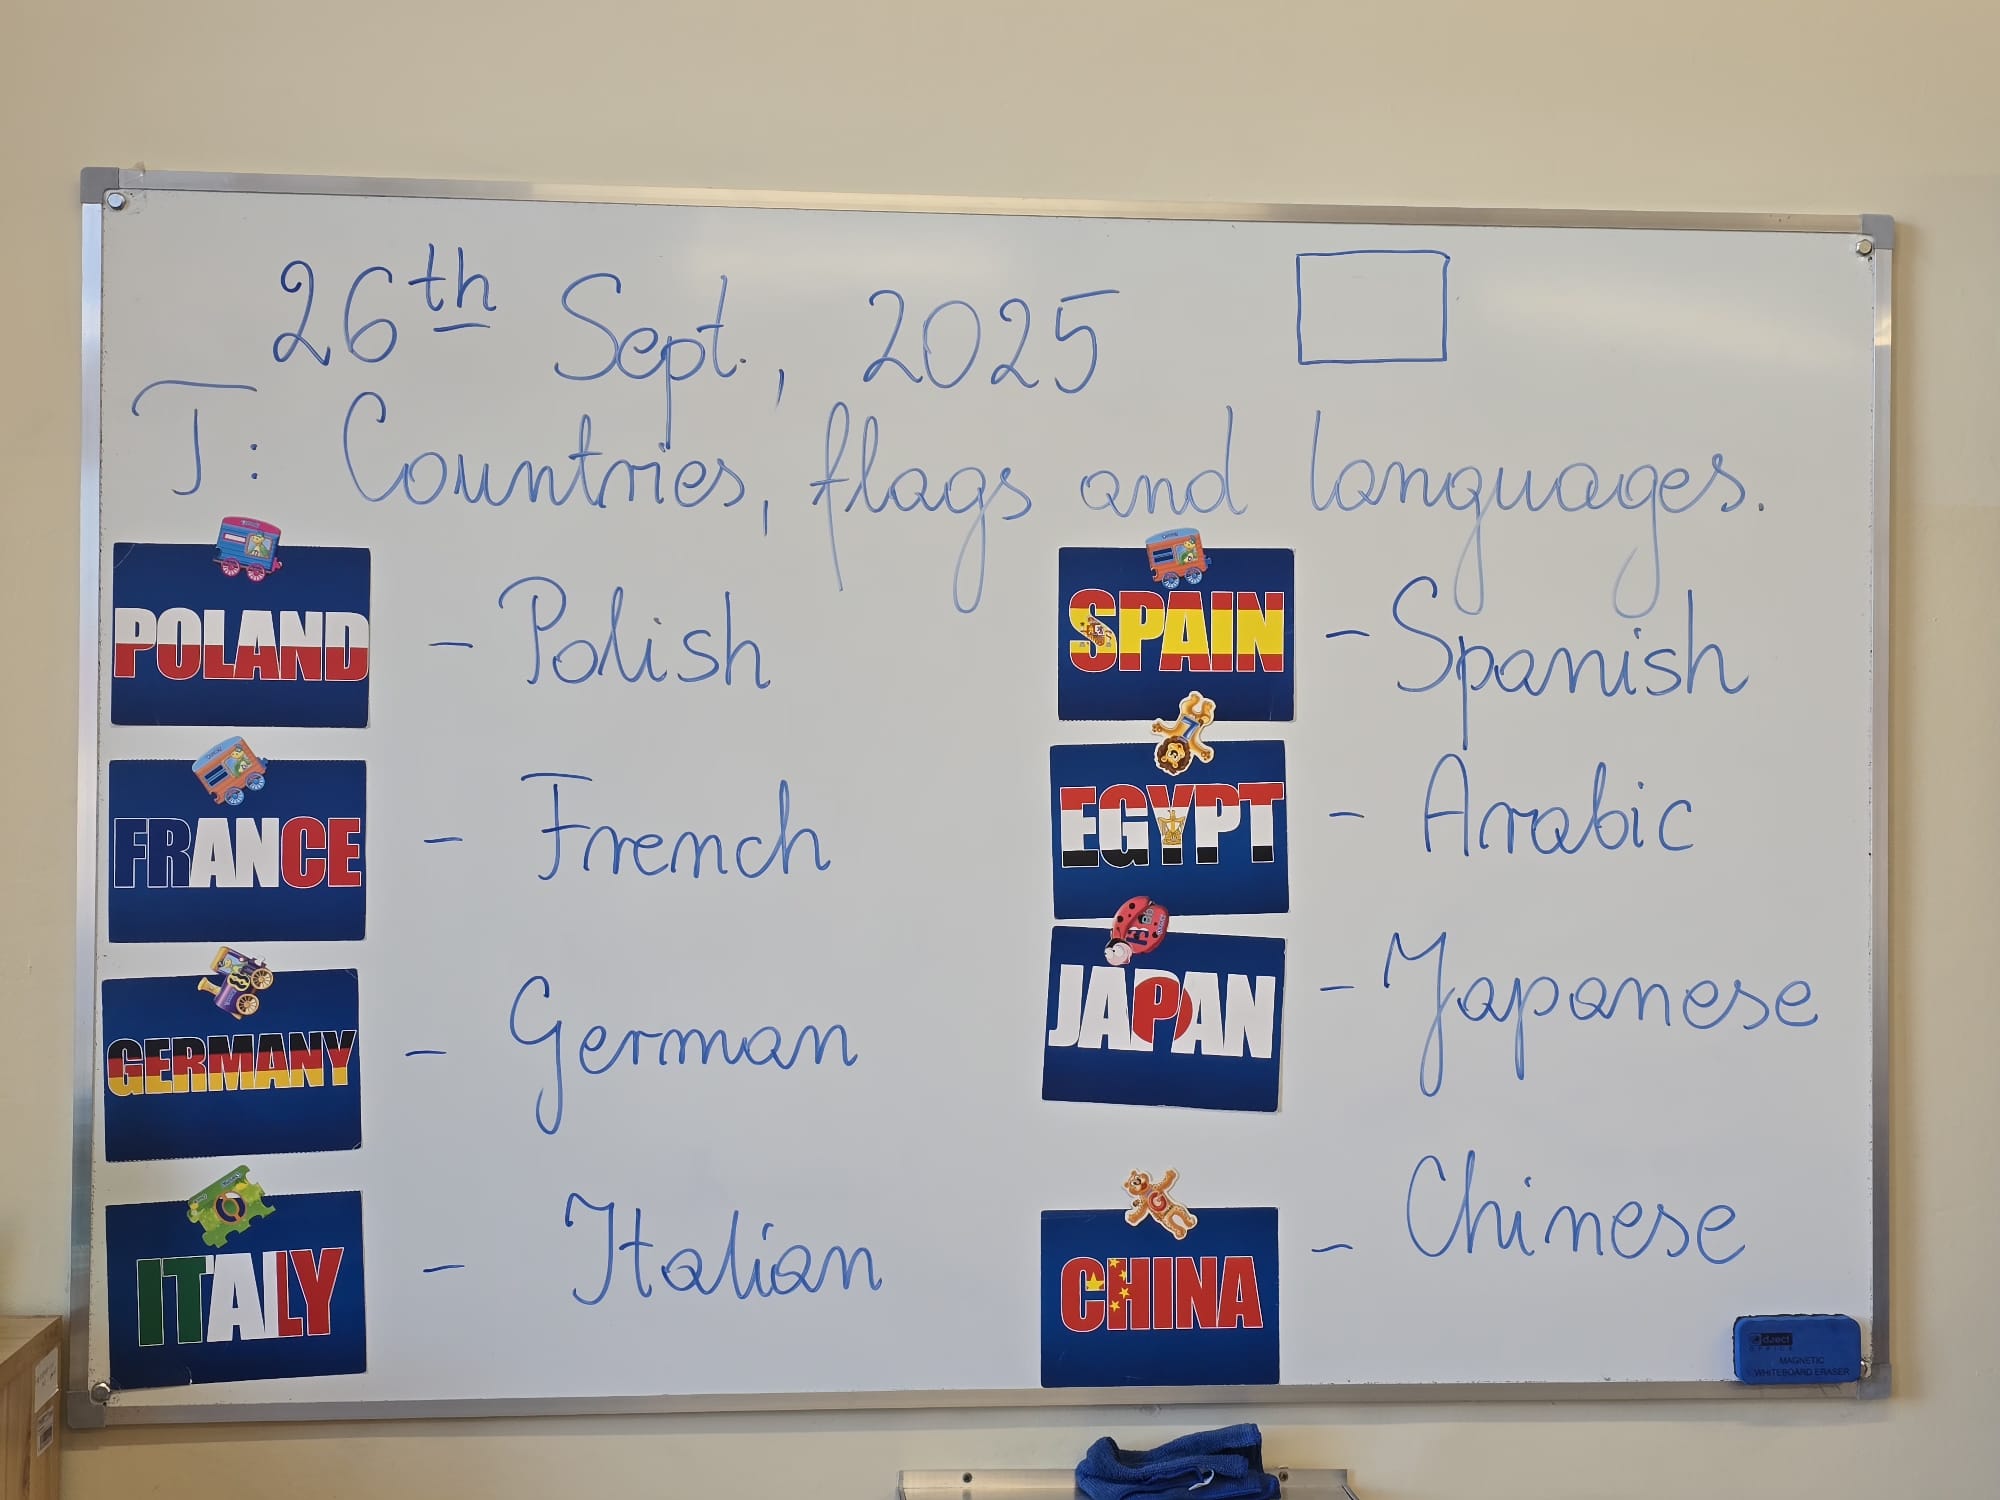 26th Sept., 2025
T: Countries, flags and languages.
POLAND - Polish
FRANCE - French
GERMANY - German
ITALY - Italian
SPAIN - Spanish
EGYPT - Arabic
JAPAN - Japanese
CHINA - Chinese
MAGNETIC
WHITEBOARD ERASER